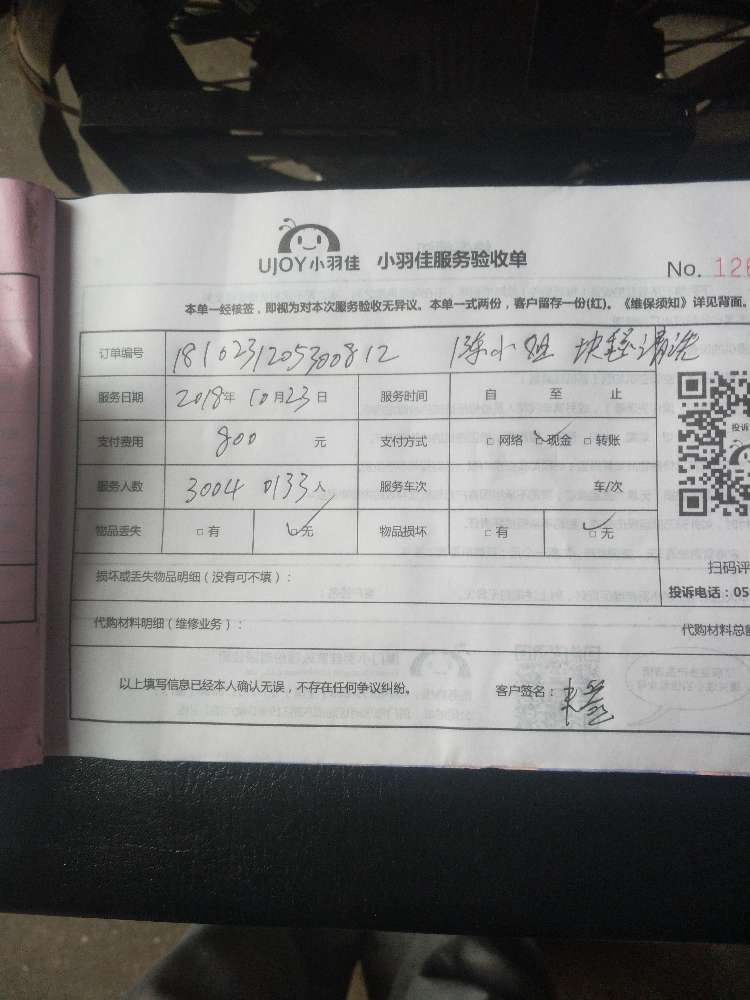 UJOY小羽佳 小羽佳服务验收单
No. 126
本单一经核签，即视为对本次服务验收无异议。本单一式两份，客户留存一份(红)。《维保须知》详见背面。
订单编号 1810231205300812 陈小姐 块清洗
服务日期 2018年 10月23日 服务时间 自 至 止
支付费用 800 元 支付方式 □网络 □现金 □转账
服务人数 3004 0133人 服务车次 车/次
物品丢失 □有 □无 物品损坏 □有 □无
投诉
扫码评
损坏或丢失物品明细（没有可不填）：
投诉电话：05
代购材料明细（维修业务）：
代购材料总
以上填写信息已经本人确认无误，不存在任何争议纠纷。 客户签名：